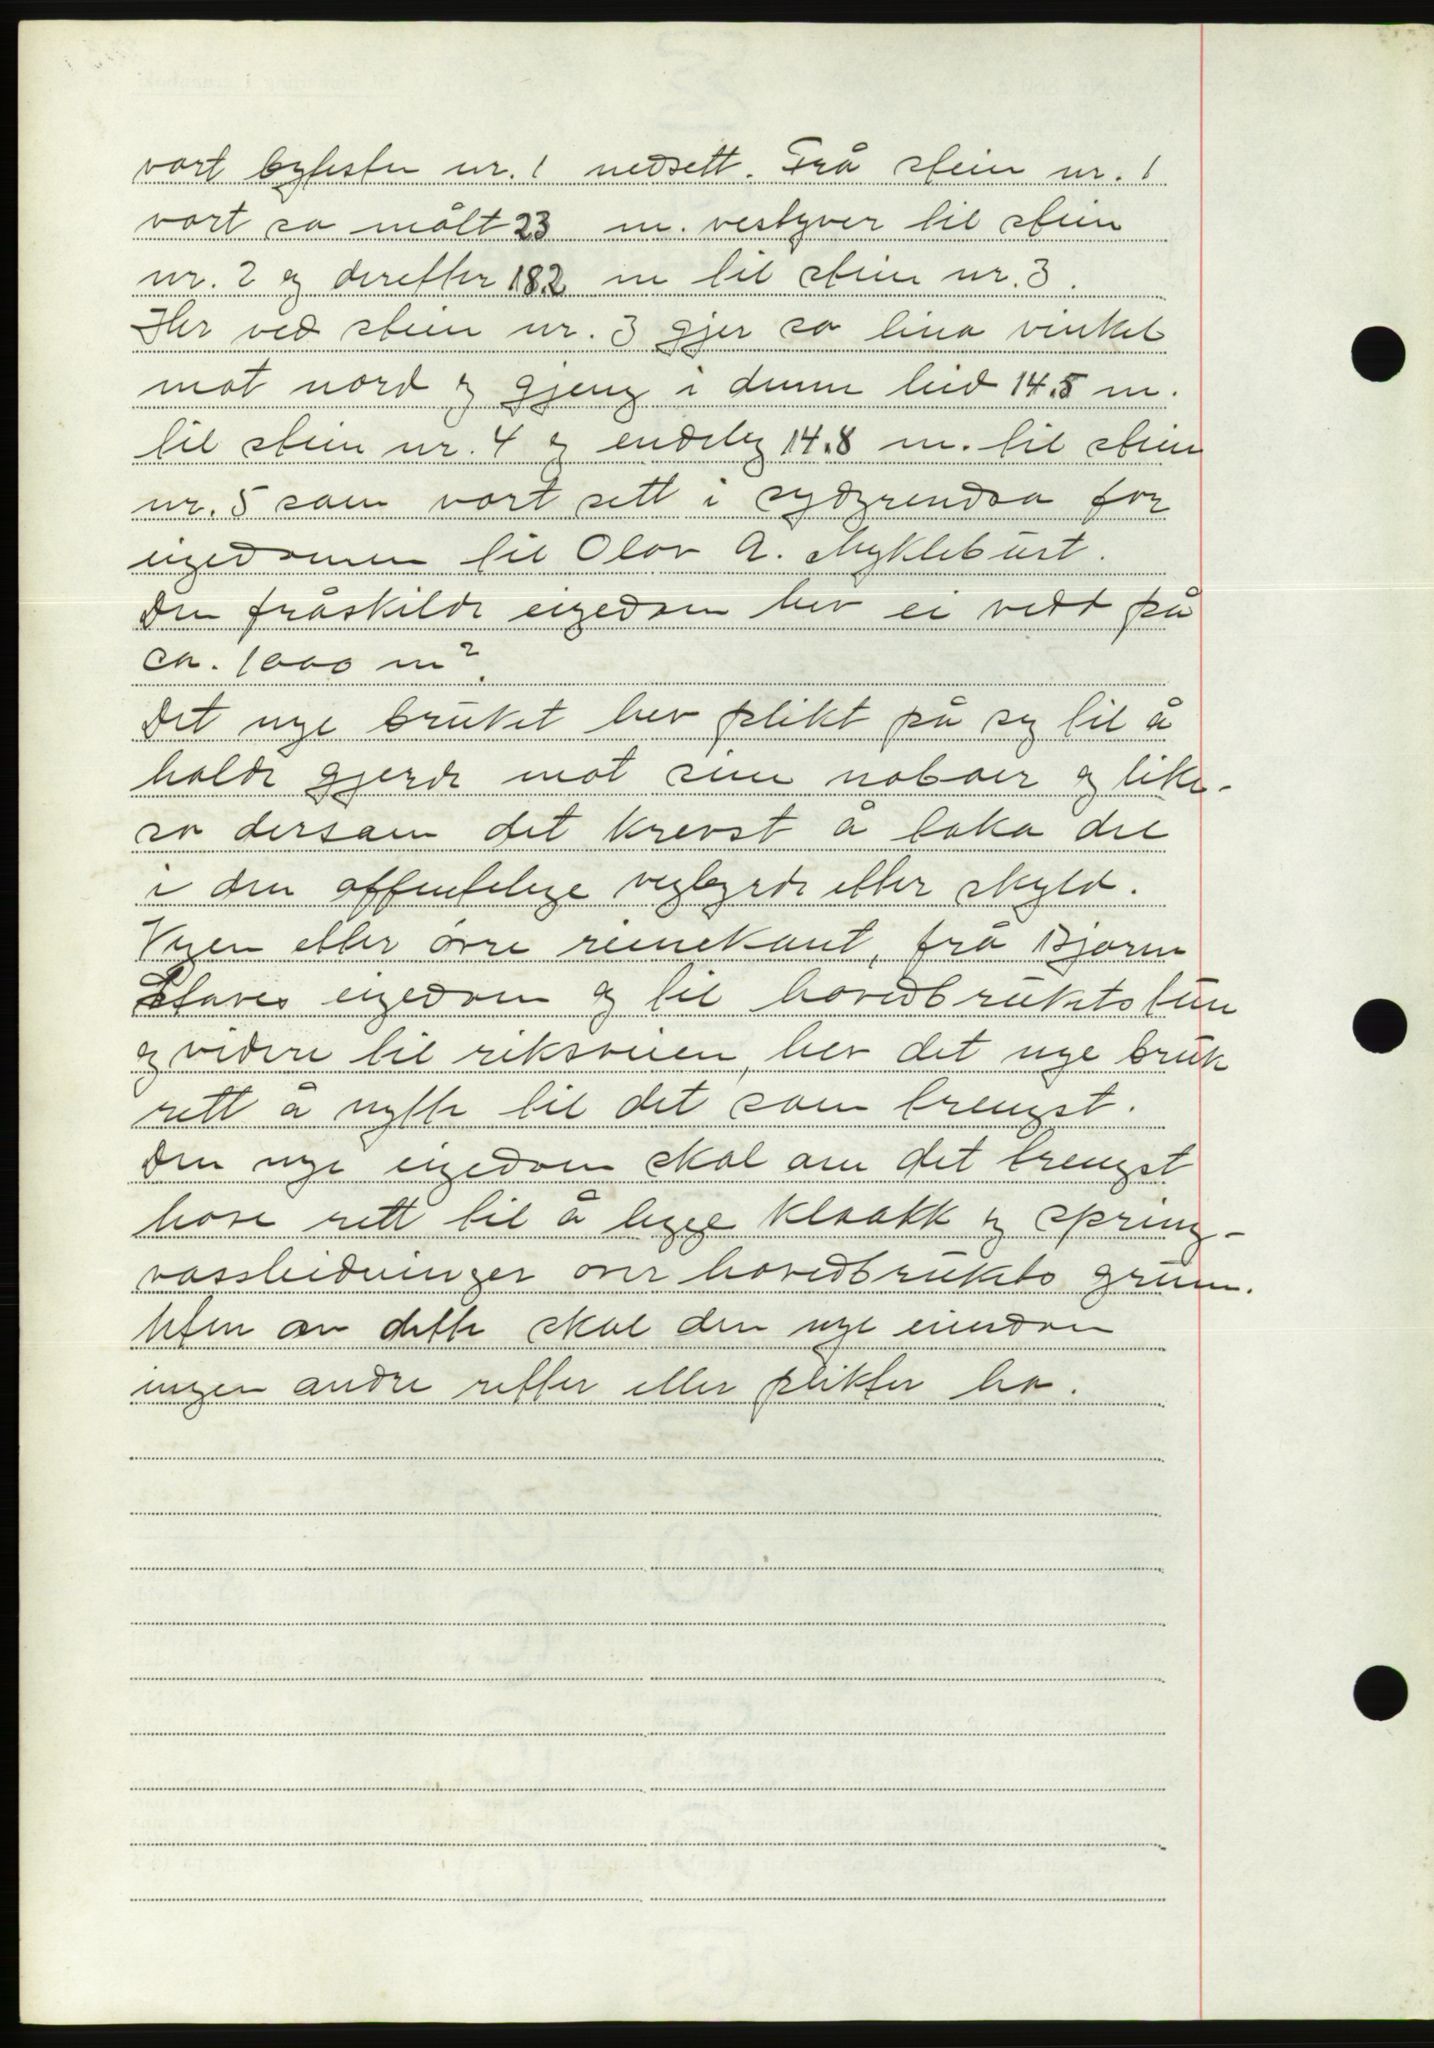 vart bytestein nr. 1 nedsett. Frå stein nr. 1
vart so målt 23 m. vestyver til stein
nr. 2 og derefter 18.2 m til stein nr. 3.
Her ved stein nr. 3 gjer so lina vinkel
mot nord og gjeng i denne leid 14.5 m.
til stein nr. 4 og endeleg 14.8 m. til stein
nr. 5 som vart sett i sydgrendsa for
eigedomen til Olav A. Myklebust.
Den fråskilde eigedom hev ei vidd på
ca. 1000 m².
Det nye bruket hev plikt på seg til å
halde gjerde mot sine naboer og like-
so dersom det krevst å taka del
i den offentlege vegbyrde eller skyld.
Vegen eller øvre reinekant, frå Bjarne
Staves eigedom og til hovedbrukets tun
og videre til riksveien, hev det nye bruk
rett å nytte til det som trengst.
Den nye eigedom skal om det trengst
have rett til å legge kloakk og spring-
vassleidninger over hovedbrukets grunn.
Uten om dette skal den nye eiendom
ingen andre retter eller plikter ha.